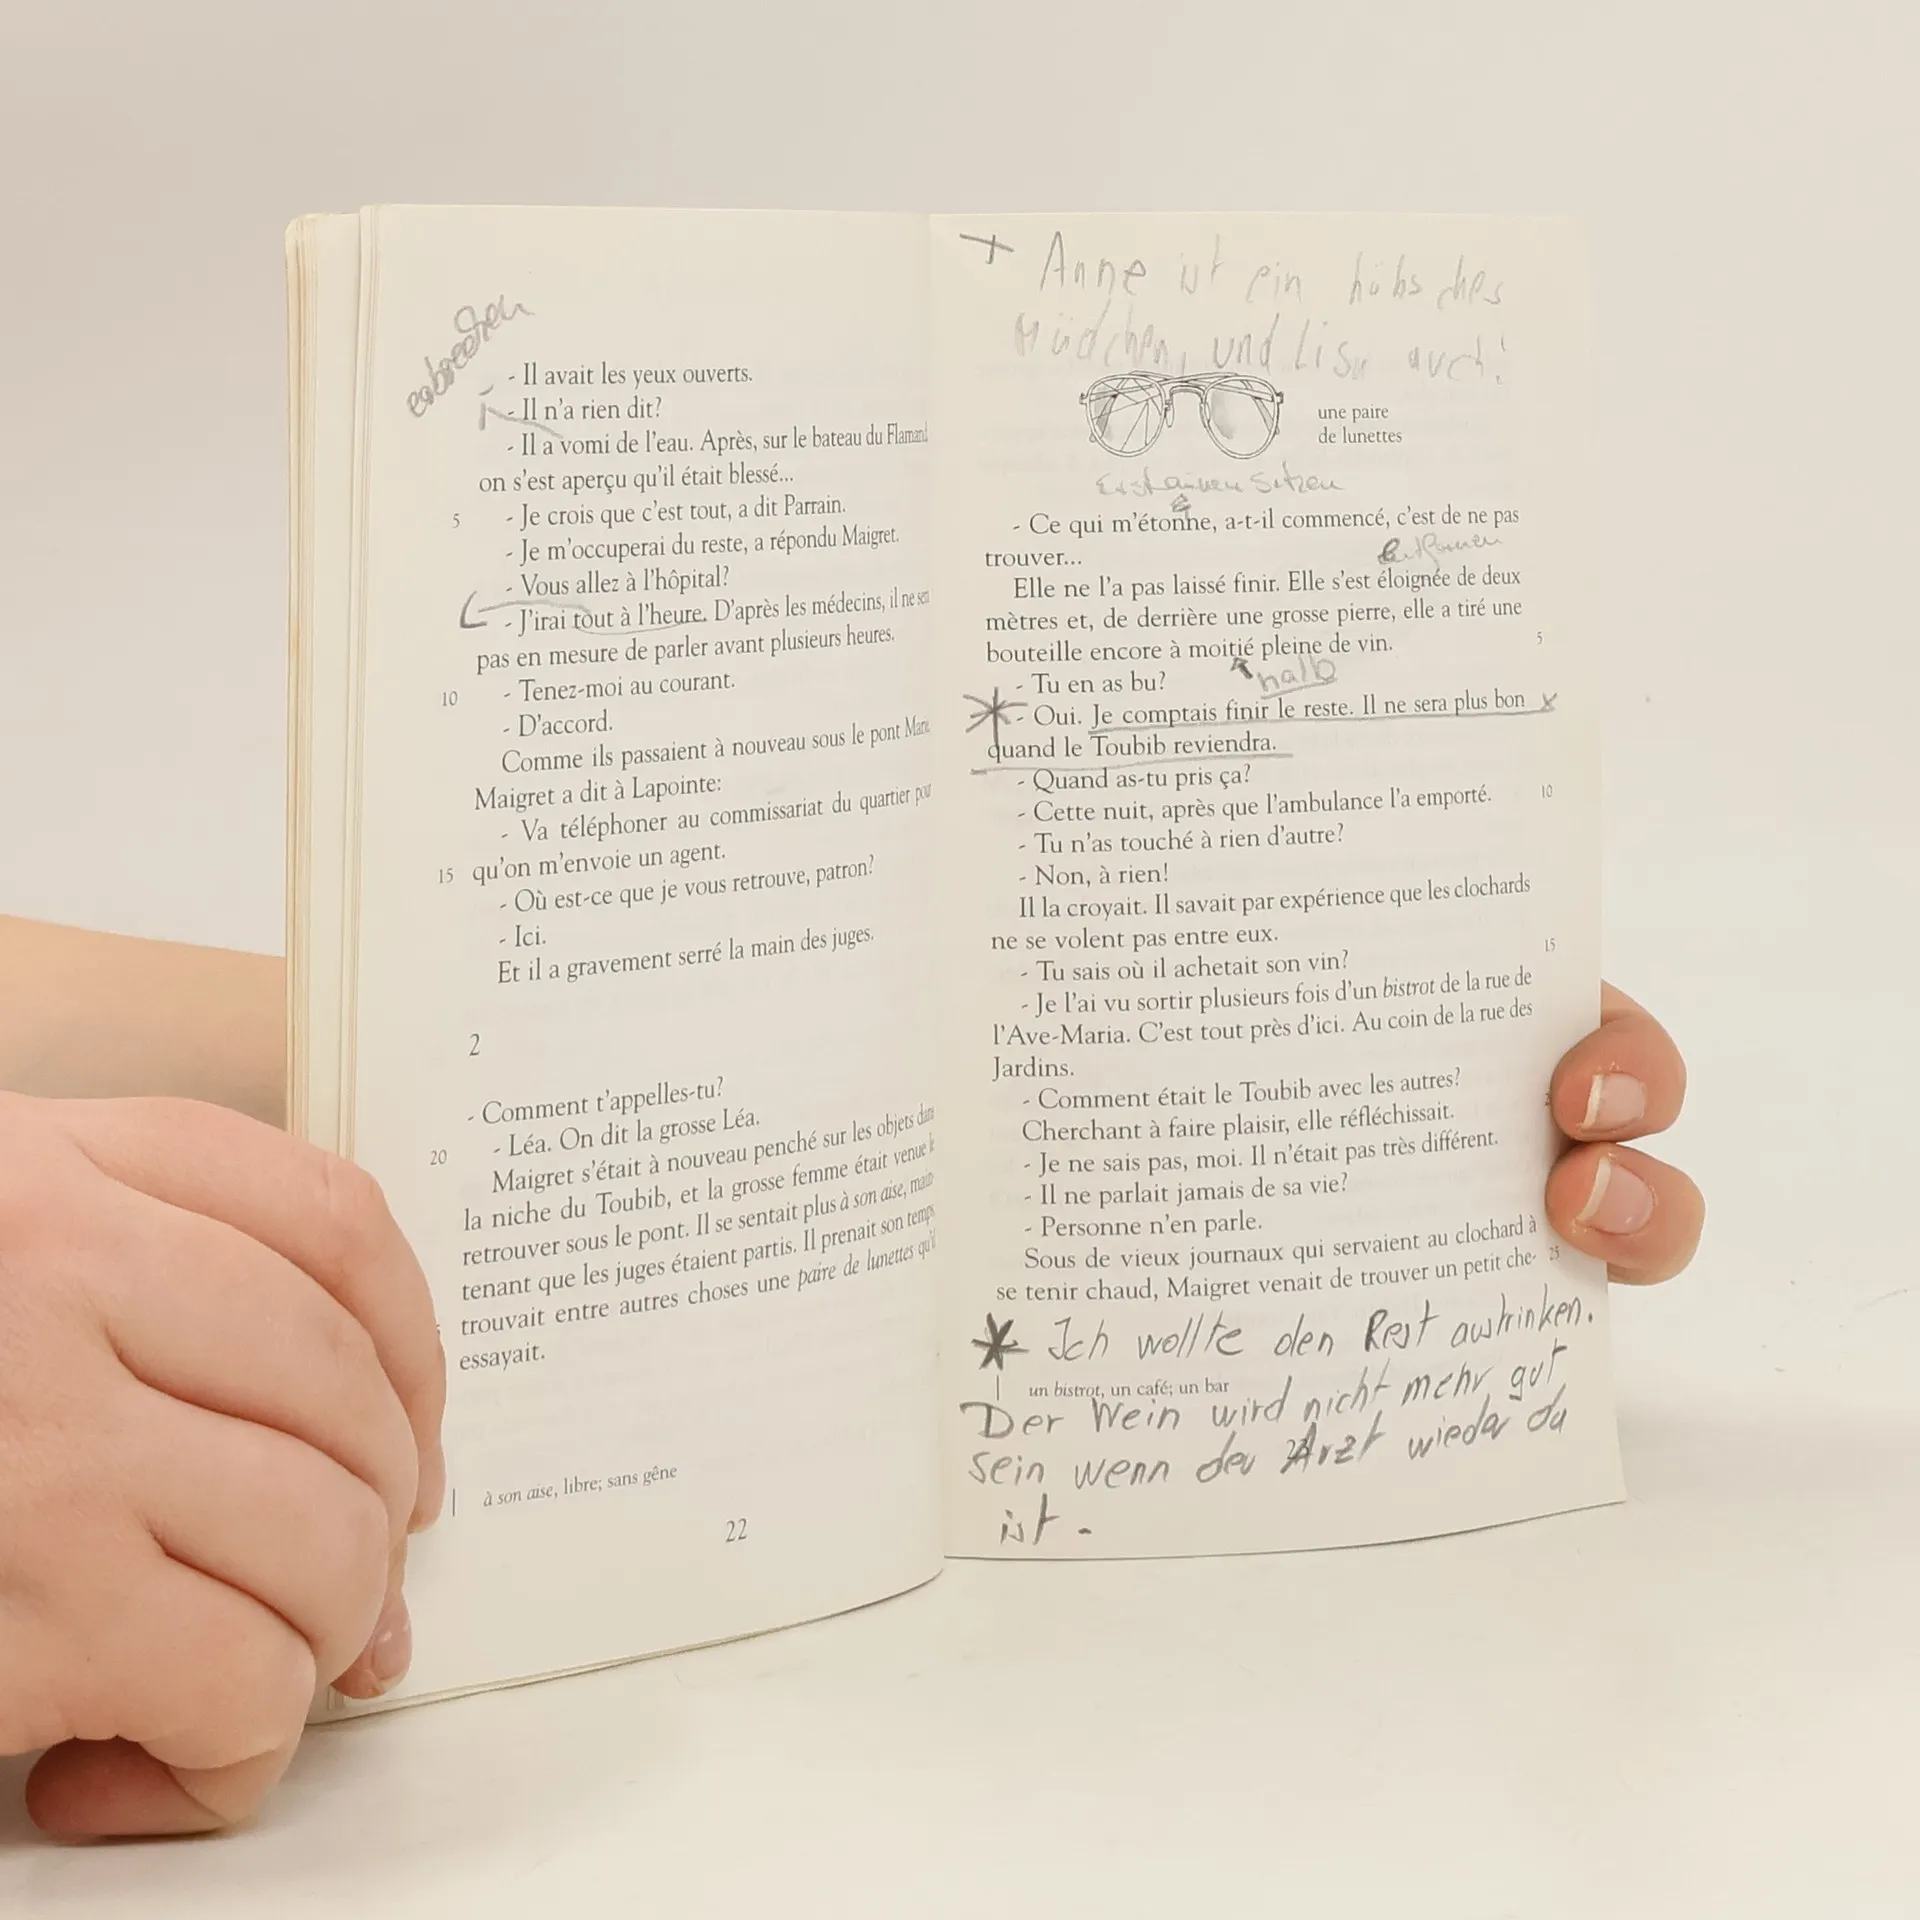 erbrechen
- Il avait les yeux ouverts.
- Il n'a rien dit?
- Il a vomi de l'eau. Après, sur le bateau du Flamand
on s'est aperçu qu'il était blessé...
5 - Je crois que c'est tout, a dit Parrain.
- Je m'occuperai du reste, a répondu Maigret.
- Vous allez à l'hôpital?
- J'irai tout à l'heure. D'après les médecins, il ne sera
pas en mesure de parler avant plusieurs heures.
10 - Tenez-moi au courant.
- D'accord.
Comme ils passaient à nouveau sous le pont Marie
Maigret a dit à Lapointe:
- Va téléphoner au commissariat du quartier pour
15 qu'on m'envoie un agent.
- Où est-ce que je vous retrouve, patron?
- Ici.
Et il a gravement serré la main des juges.
2
- Comment t'appelles-tu?
20 - Léa. On dit la grosse Léa.
Maigret s'était à nouveau penché sur les objets dans
la niche du Toubib, et la grosse femme était venue le
retrouver sous le pont. Il se sentait plus à son aise, main-
tenant que les juges étaient partis. Il prenait son temps
trouvait entre autres choses une paire de lunettes qu'il
essayait.
à son aise, libre; sans gêne
22
+ Anne ist ein hübsches
Mädchen, und Lisa auch!
une paire
de lunettes
Erstaunen setzen
- Ce qui m'étonne, a-t-il commencé, c'est de ne pas
trouver...
entfernen
Elle ne l'a pas laissé finir. Elle s'est éloignée de deux
mètres et, de derrière une grosse pierre, elle a tiré une
bouteille encore à moitié pleine de vin. 5
halb
- Tu en as bu?
* - Oui. Je comptais finir le reste. Il ne sera plus bon x
quand le Toubib reviendra.
- Quand as-tu pris ça?
- Cette nuit, après que l'ambulance l'a emporté. 10
- Tu n'as touché à rien d'autre?
- Non, à rien!
Il la croyait. Il savait par expérience que les clochards
ne se volent pas entre eux.
- Tu sais où il achetait son vin? 15
- Je l'ai vu sortir plusieurs fois d'un bistrot de la rue de
l'Ave-Maria. C'est tout près d'ici. Au coin de la rue des
Jardins.
- Comment était le Toubib avec les autres?
Cherchant à faire plaisir, elle réfléchissait.
- Je ne sais pas, moi. Il n'était pas très différent.
- Il ne parlait jamais de sa vie?
- Personne n'en parle.
Sous de vieux journaux qui servaient au clochard à
se tenir chaud, Maigret venait de trouver un petit che- 25
* Ich wollte den Rest austrinken.
un bistrot, un café; un bar
Der Wein wird nicht mehr gut
sein wenn der Arzt wieder da
23
ist.